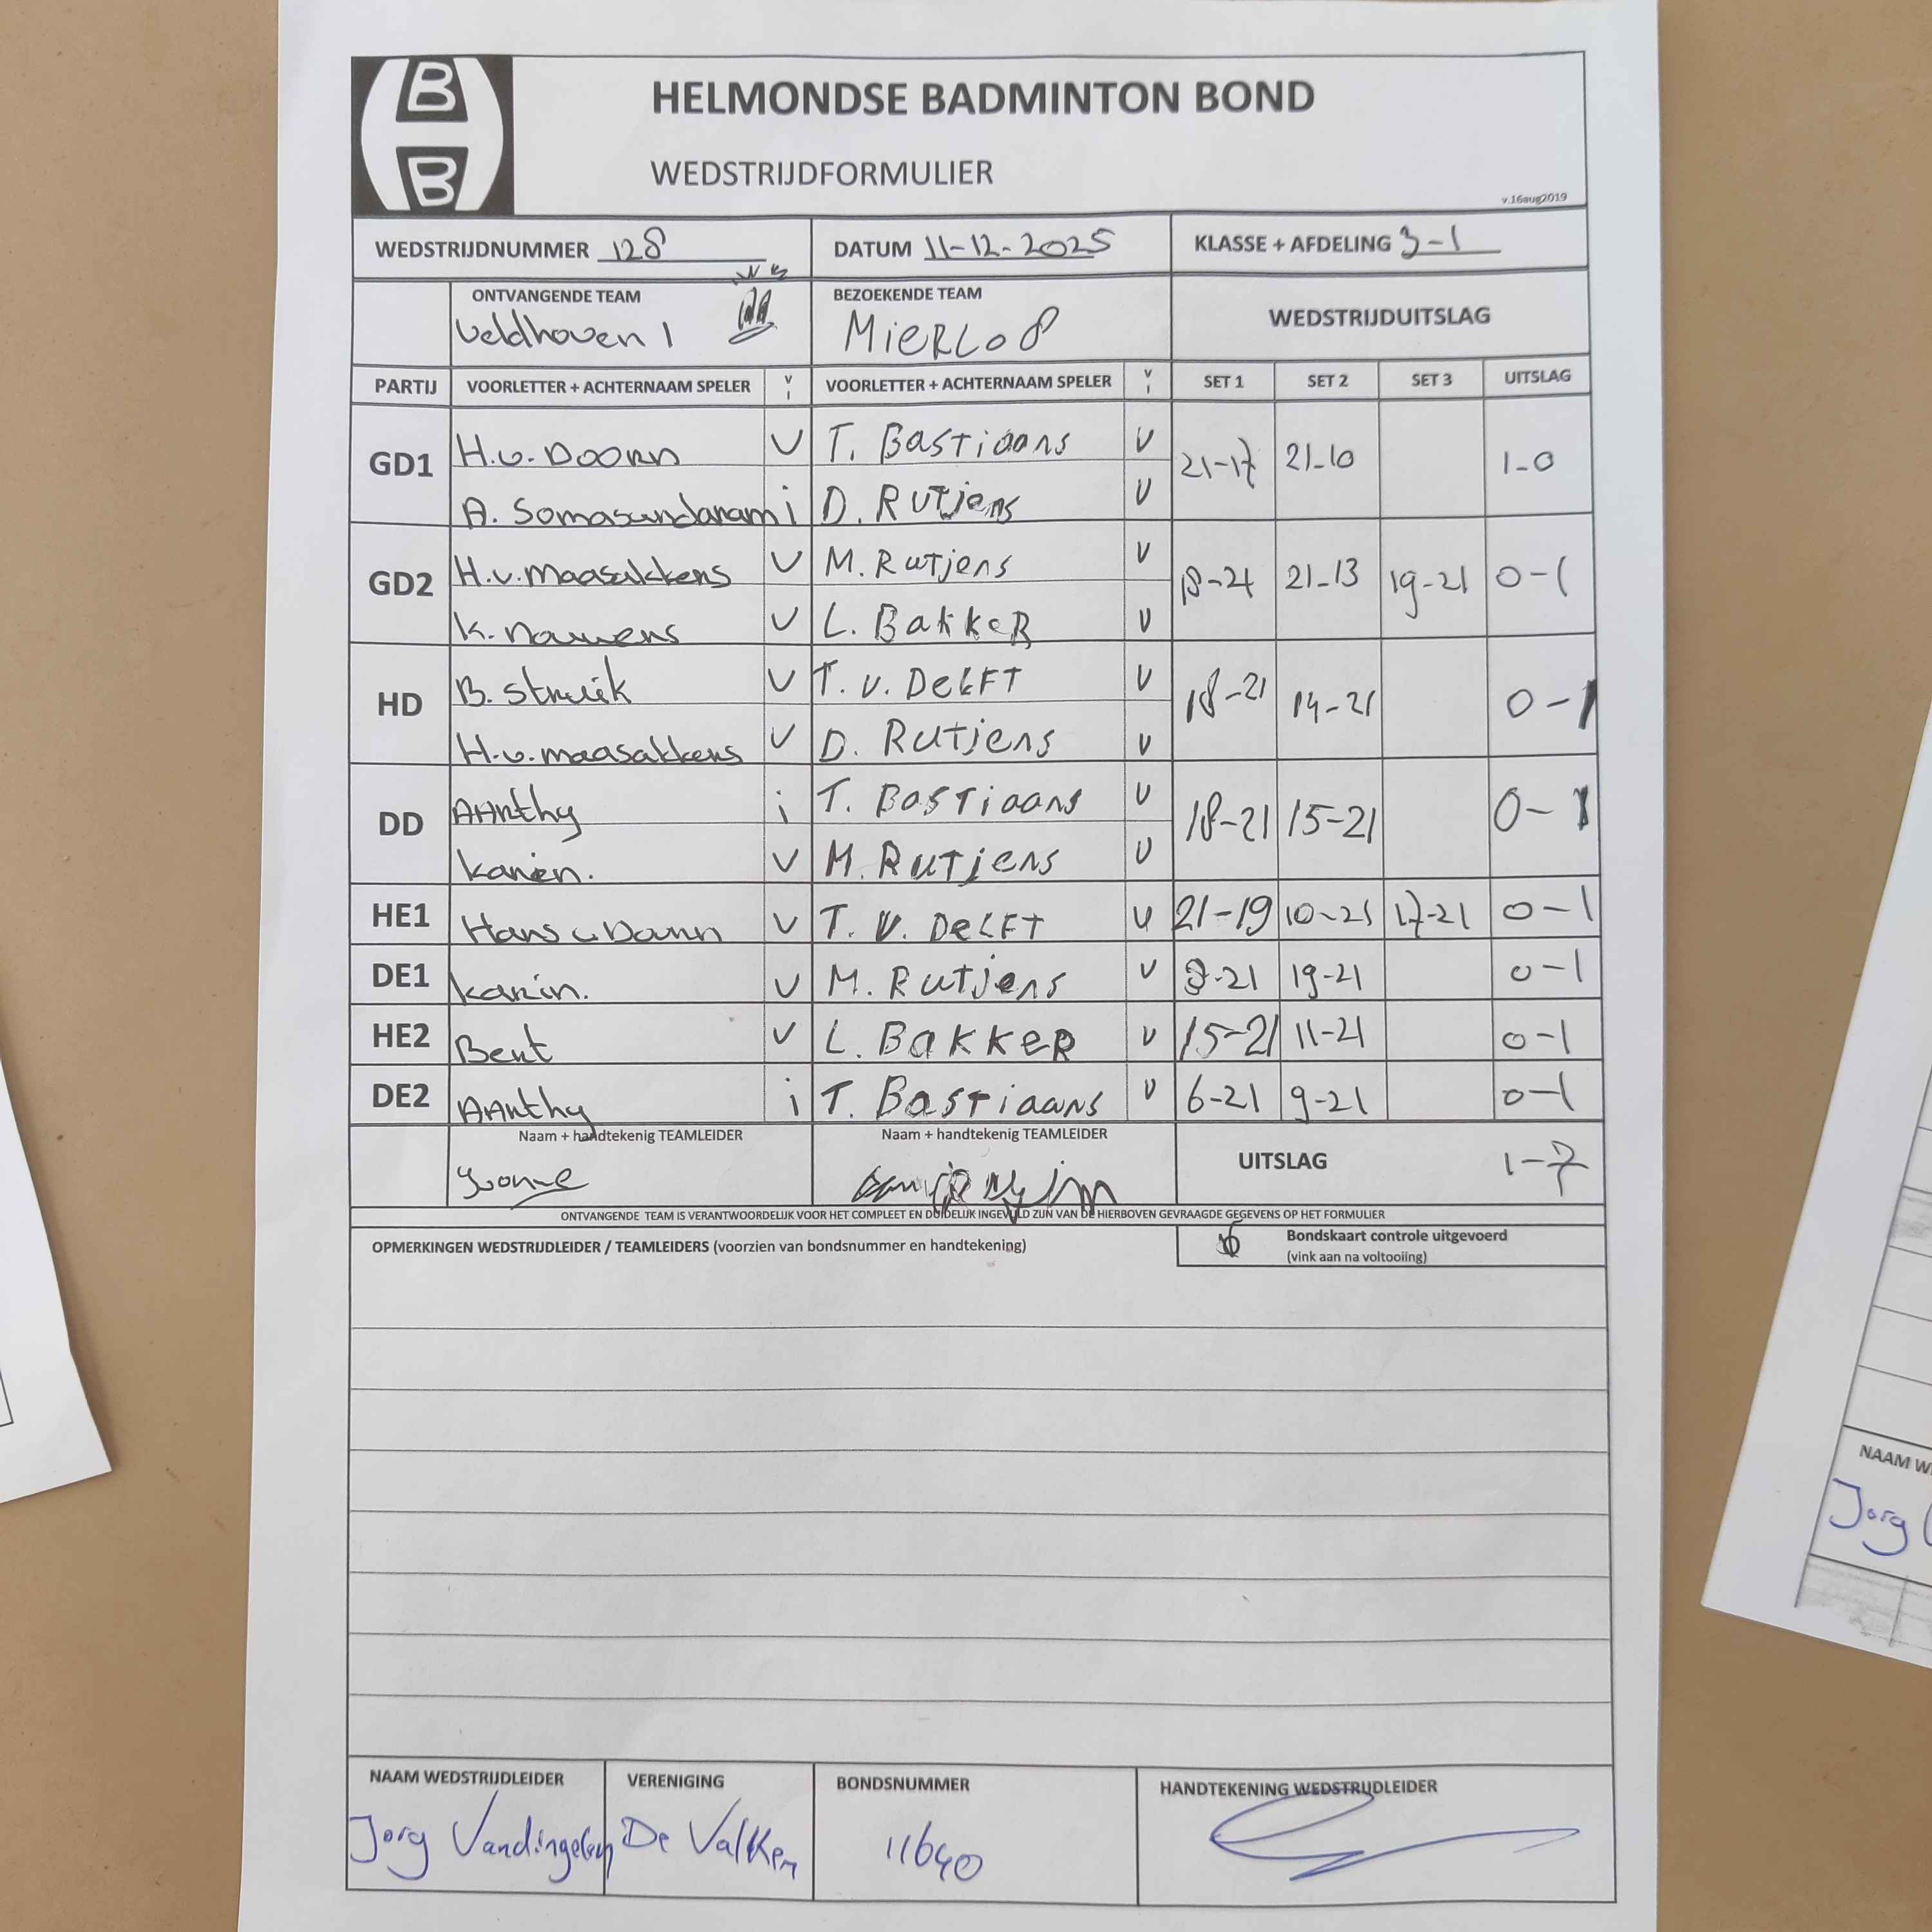 B
B
HELMONDSE BADMINTON BOND
WEDSTRIJDFORMULIER
v.16aug2019
WEDSTRIJDNUMMER 128
DATUM 11-12-2025
KLASSE + AFDELING 3-1
ONTVANGENDE TEAM
Veldhoven 1
BEZOEKENDE TEAM
MIERLO 8
WEDSTRIJDUITSLAG
PARTIJ VOORLETTER + ACHTERNAAM SPELER V I VOORLETTER + ACHTERNAAM SPELER V I SET 1 SET 2 SET 3 UITSLAG
GD1 H.v.Doorn V T. Bastiaans V 21-17 21-10 1-0
A. Somasundaram i D. Rutjens V
GD2 H.v.maasakkers V M. Rutjens V 18-21 21-13 19-21 0-1
K. nouwens V L. Bakker V
HD B. Struik V T. v. Delft V 18-21 14-21 0-1
H.v.maasakkers V D. Rutjens V
DD AArthy i T. Bastiaans V 18-21 15-21 0-1
Karien. V M. Rutjens V
HE1 Hans v Doorn V T. v. Delft V 21-19 10-21 17-21 0-1
DE1 Karin. V M. Rutjens V 8-21 19-21 0-1
HE2 Bert V L. Bakker V 15-21 11-21 0-1
DE2 AArthy i T. Bastiaans V 6-21 9-21 0-1
Naam + handtekenig TEAMLEIDER
Yvonne
Naam + handtekenig TEAMLEIDER
UITSLAG 1-7
ONTVANGENDE TEAM IS VERANTWOORDELIJK VOOR HET COMPLEET EN DUIDELIJK INGEVULD ZIJN VAN DE HIERBOVEN GEVRAAGDE GEGEVENS OP HET FORMULIER
OPMERKINGEN WEDSTRIJDLEIDER / TEAMLEIDERS (voorzien van bondsnummer en handtekening)
Bondskaart controle uitgevoerd
(vink aan na voltooiing)
NAAM WEDSTRIJDLEIDER VERENIGING BONDSNUMMER HANDTEKENING WEDSTRIJDLEIDER
Jorg De Valken 11640
NAAM W
Jorg